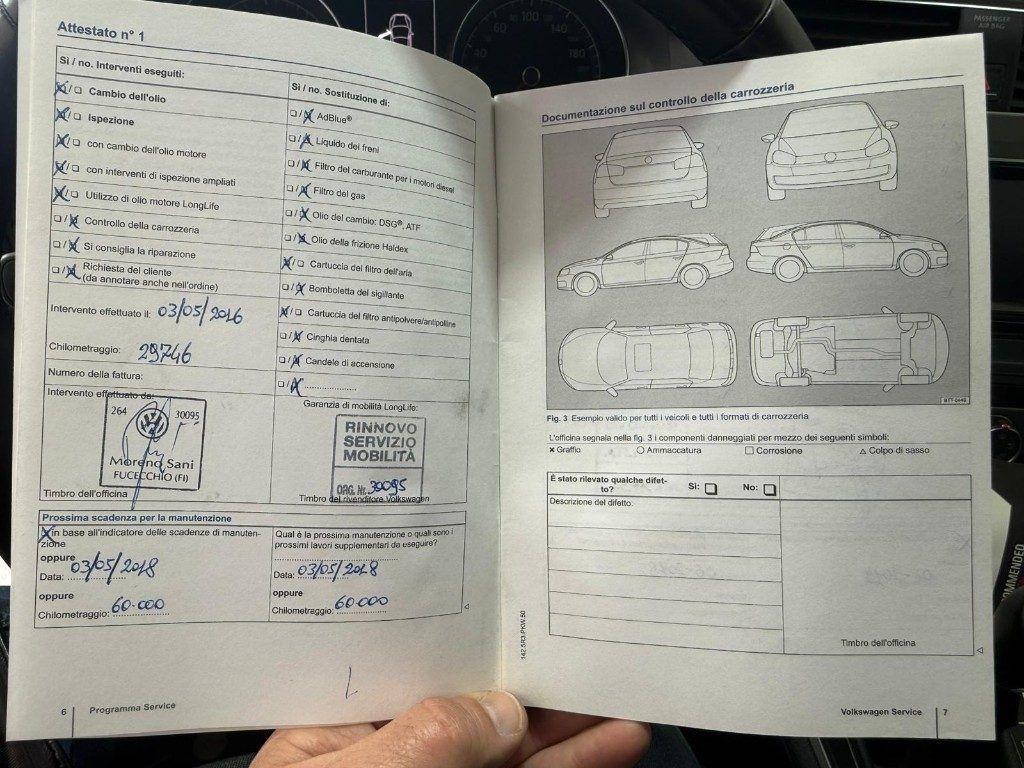 Attestato n° 1
Sì / no. Interventi eseguiti:
Cambio dell'olio
Ispezione
con cambio dell'olio motore
con interventi di ispezione ampliati
Utilizzo di olio motore LongLife
Controllo della carrozzeria
Si consiglia la riparazione
Richiesta del cliente
(da annotare anche nell'ordine)
Intervento effettuato il: 03/05/2016
Chilometraggio: 29746
Numero della fattura:
Intervento effettuato da:
264
30095
Moreno Sani
FUCECCHIO (FI)
Timbro dell'officina
Sì / no. Sostituzione di:
AdBlue®
Liquido dei freni
Filtro del carburante per i motori diesel
Filtro del gas
Olio del cambio: DSG®, ATF
Olio della frizione Haldex
Cartuccia del filtro dell'aria
Bomboletta del sigillante
Cartuccia del filtro antipolvere/antipolline
Cinghia dentata
Candele di accensione
Garanzia di mobilità LongLife:
RINNOVO
SERVIZIO
MOBILITÀ
ORG. Nr. 30095
Timbro del rivenditore Volkswagen
Prossima scadenza per la manutenzione
in base all'indicatore delle scadenze di manuten-
zione
oppure
Data: 03/05/2018
oppure
Chilometraggio: 60.000
Qual è la prossima manutenzione o quali sono i
prossimi lavori supplementari da eseguire?
Data: 03/05/2018
oppure
Chilometraggio: 60.000
6
Programma Service
Documentazione sul controllo della carrozzeria
Fig. 3 Esempio valido per tutti i veicoli e tutti i formati di carrozzeria
L'officina segnala nella fig. 3 i componenti danneggiati per mezzo dei seguenti simboli:
Graffio
Ammaccatura
Corrosione
Colpo di sasso
È stato rilevato qualche difet-
to?
Sì:
No:
Descrizione del difetto:
Timbro dell'officina
142.5R3.PKW.50
Volkswagen Service
7
PASSENGER
AIR BAG
40
60
100
140
180